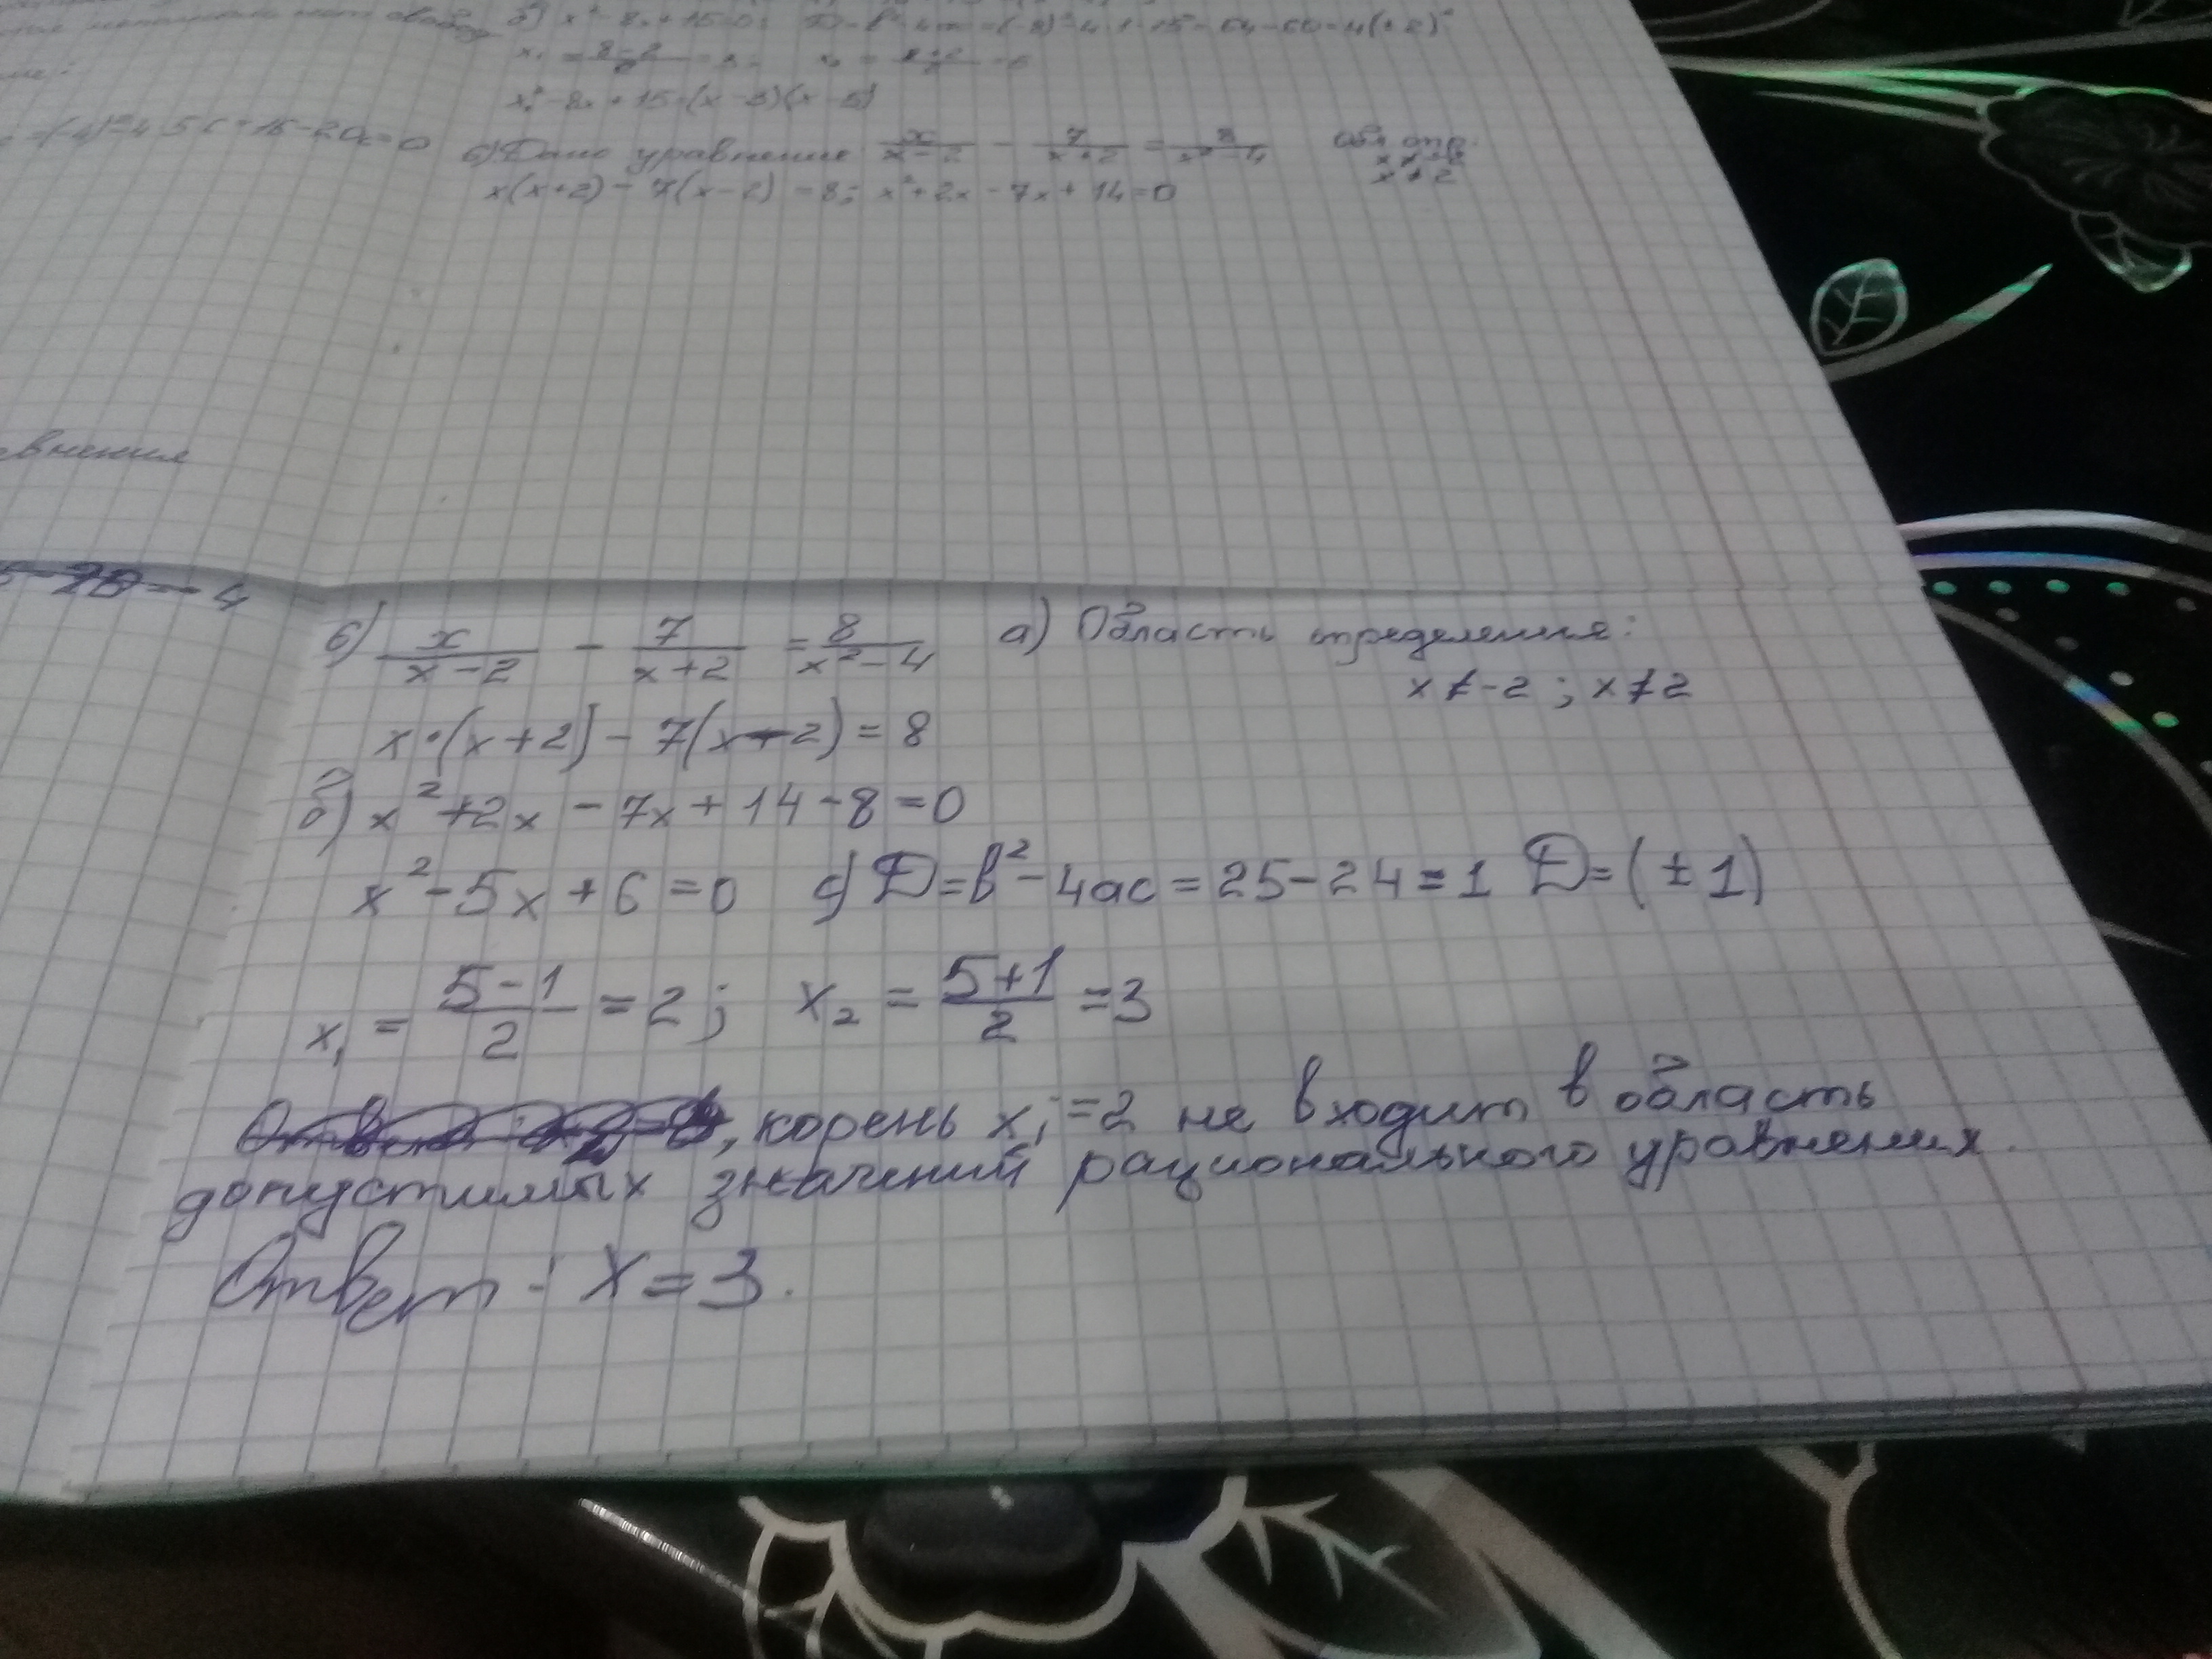 б) x² - 8x + 15 = 0; D = b² - 4ac = (-8)² - 4·1·15 = 64 - 60 = 4 (±2)²
x₁ = (8-2)/2 = 3; x₂ = (8+2)/2 = 5
x² - 8x + 15 = (x - 3)(x - 5)
= (-4)² - 4·5c = 16 - 20c = 0
6) Дано уравнение x/(x-2) - 7/(x+2) = 8/(x²-4) Обл опр.
x ≠ -2
x(x+2) - 7(x-2) = 8; x²+2x - 7x + 14 = 0 x ≠ 2
внения
6) x/(x-2) - 7/(x+2) = 8/(x²-4) а) Область определения:
x ≠ -2 ; x ≠ 2
x·(x+2) - 7(x-2) = 8
б) x² + 2x - 7x + 14 - 8 = 0
x² - 5x + 6 = 0 с) D = b² - 4ac = 25 - 24 = 1 D = (±1)
x₁ = (5-1)/2 = 2; x₂ = (5+1)/2 = 3
, корень x₁ = 2 не входит в область
допустимых значений рационального уравнения.
Ответ: x = 3.